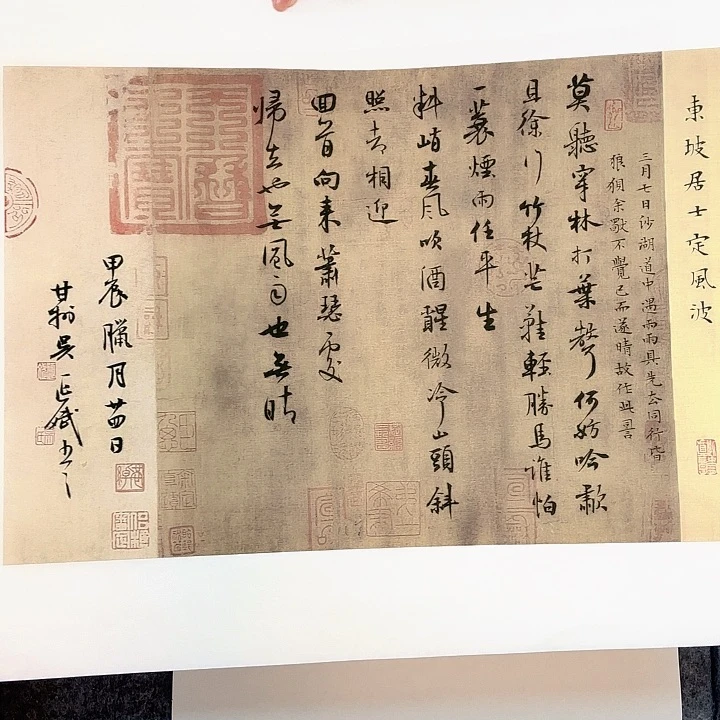 東坡居士定風波
三月七日沙湖道中遇雨雨具先去同行皆
狼狽余獨不覺已而遂晴故作此
莫聽穿林打葉聲何妨吟歗
且徐行竹杖芒鞋輕勝馬誰怕
一蓑煙雨任平生
料峭春風吹酒醒微冷山頭斜
照去相迎
回首向来蕭瑟處
歸去也無風雨也無晴
甲辰臘月廿四日
甘州吳正斌书之